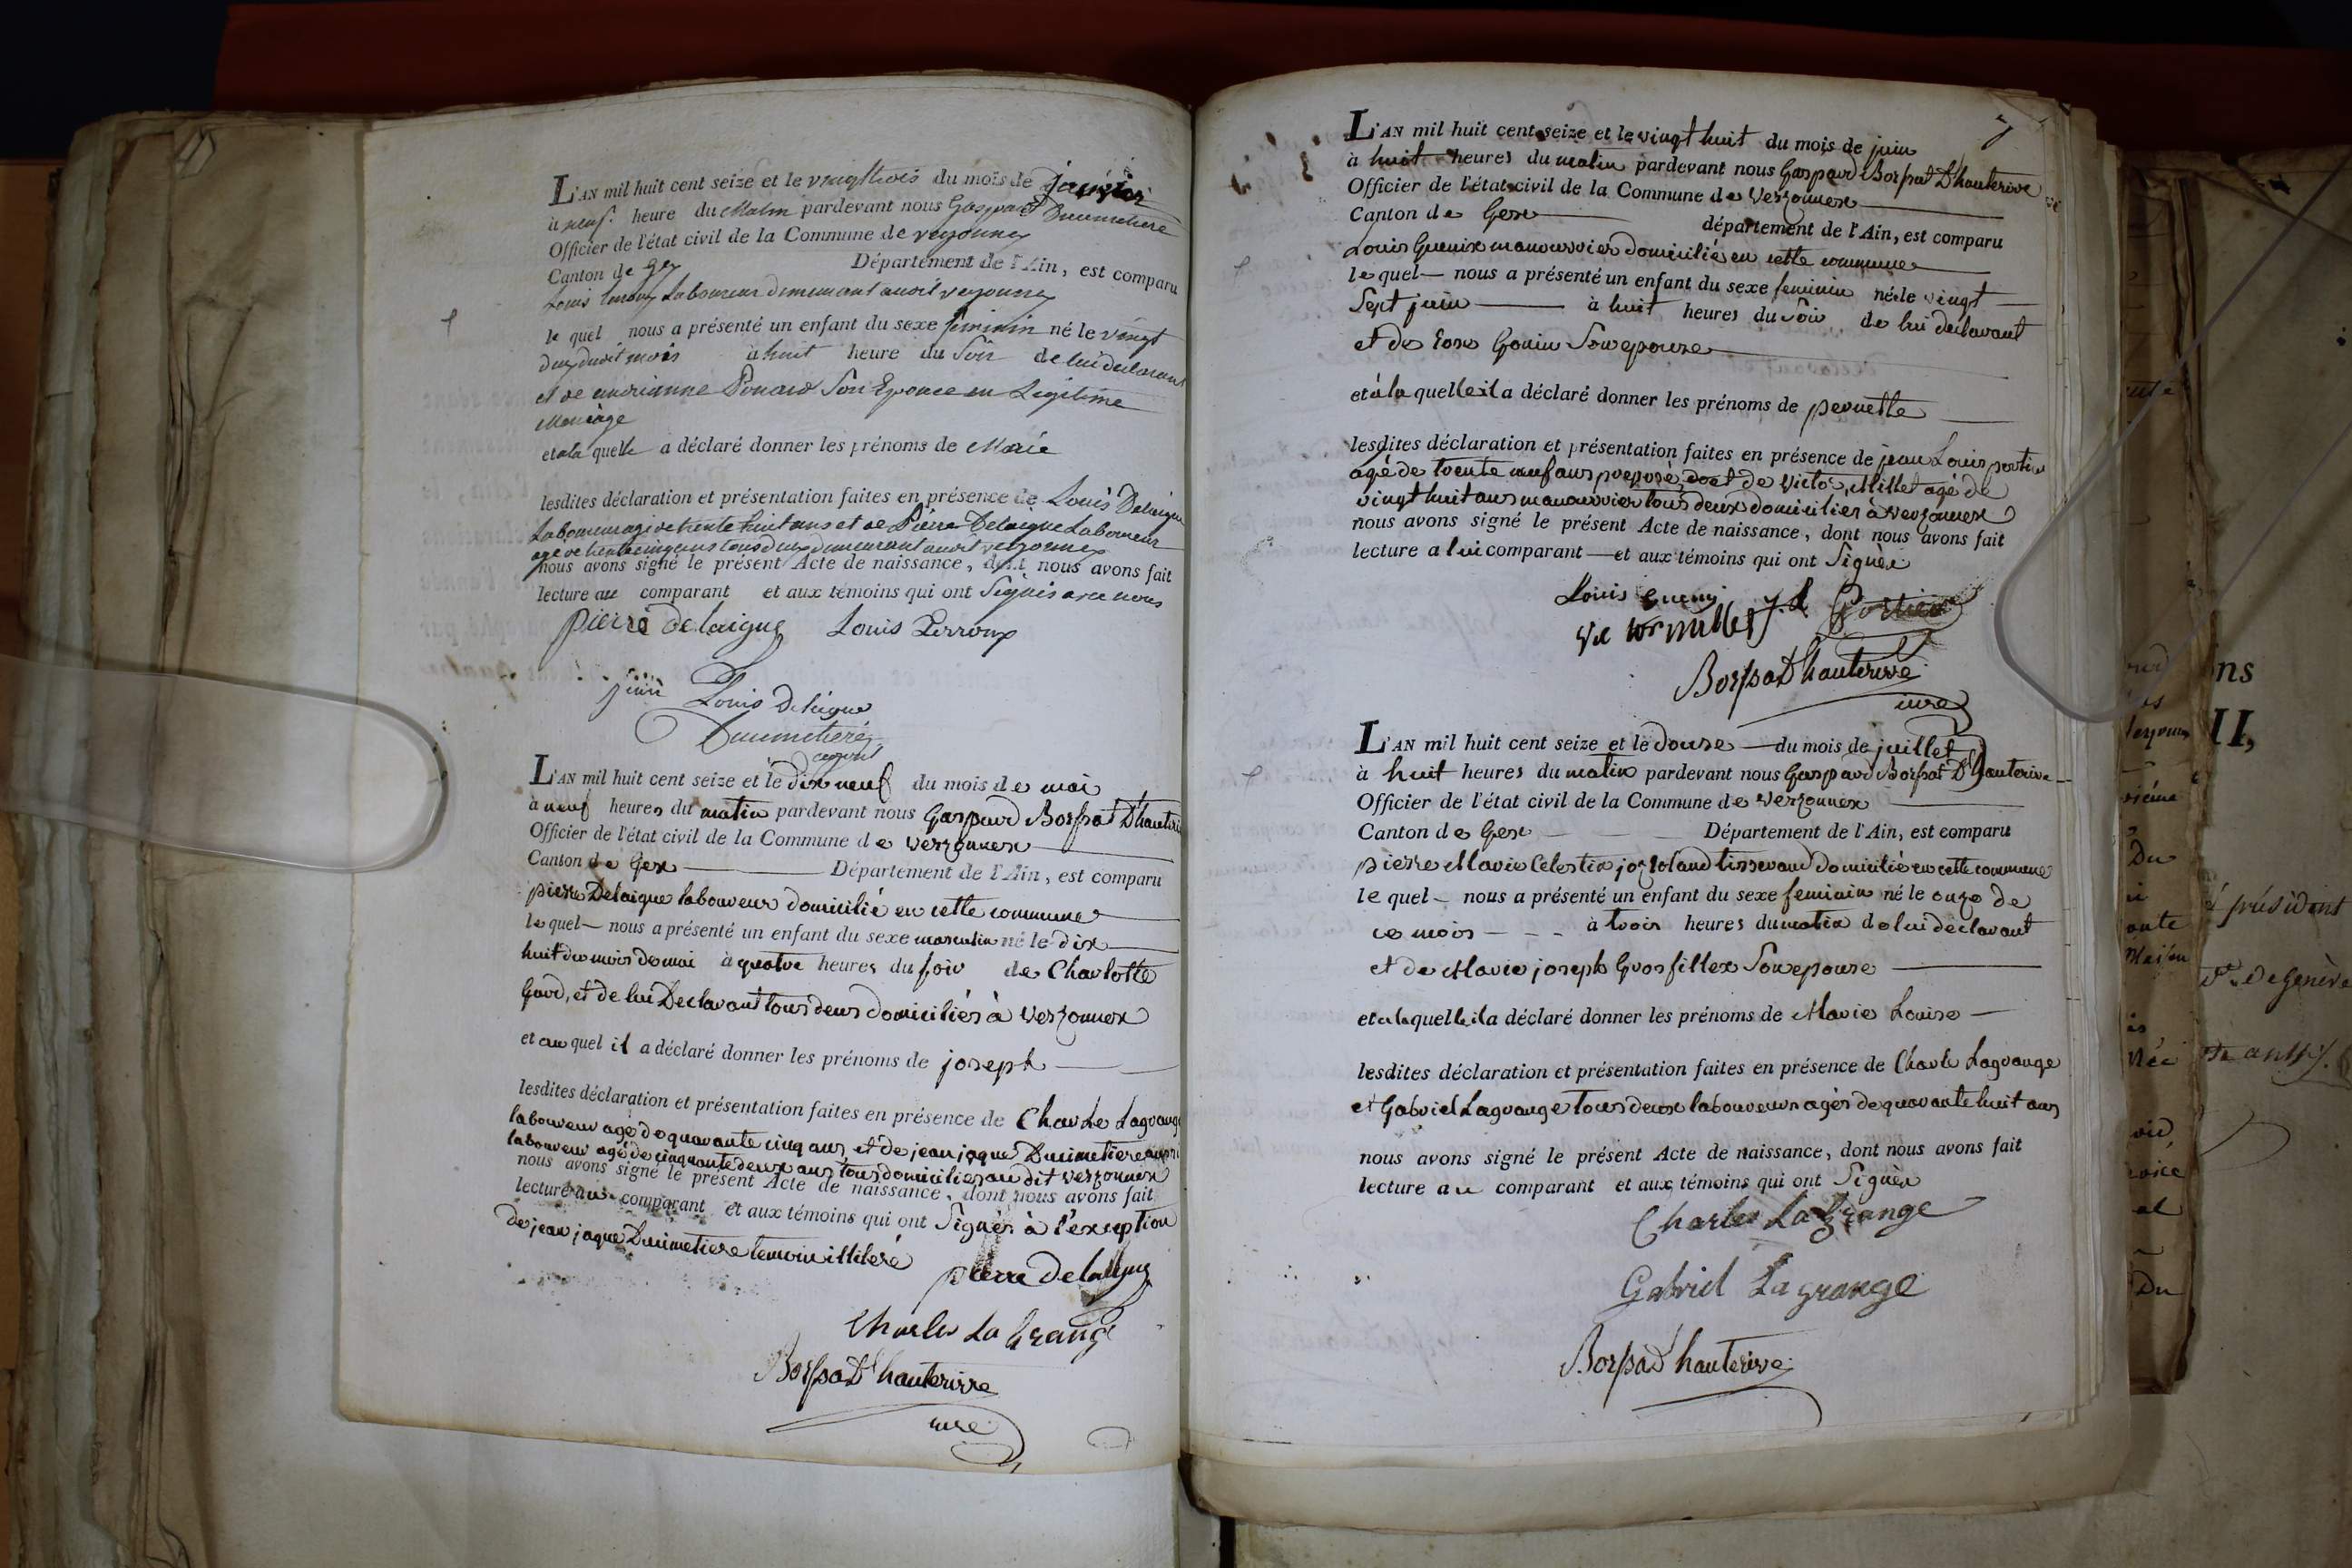 L'AN mil huit cent seize et le vingttrois du mois de janvier
à neuf heure du Matin pardevant nous Gaspard Ducimetiere
Officier de l'état civil de la Commune de versonnex
Canton de Gex Département de l'Ain, est comparu
Louis Laboureur demeurant audit versonnex
le quel nous a présenté un enfant du sexe feminin né le vingt
deux dudit mois à huit heure du Soir de lui declarant
et de andrianne Son Epouce en Legitime
Mariage
et a la quelle a déclaré donner les prénoms de Marie
lesdites déclaration et présentation faites en présence de Louis Delaigue
Laboureur agé de trente huit ans et de Pierre Delaigue Laboureur
agé de trente cinq ans tous deux demeurant audit versonnex
nous avons signé le présent Acte de naissance, dont nous avons fait
lecture au comparant et aux témoins qui ont Signés avec nous
pierre delaigue Louis Perroux
Louis Delaigue
Ducimetiere
adjoint
L'AN mil huit cent seize et le dix neuf du mois de mai
à neuf heures du matin pardevant nous Gaspard Borssat D'hauterive
Officier de l'état civil de la Commune de Versonnex
Canton de Gex Département de l'Ain, est comparu
pierre Delaigue laboureur domicilié en cette commune
le quel nous a présenté un enfant du sexe masculin né le dix
huit du mois de mai à quatre heures du soir de Charlotte
Gard, et de lui Declarant tous deux domiciliés à Versonnex
et au quel il a déclaré donner les prénoms de joseph
lesdites déclaration et présentation faites en présence de Charle Lagrange
laboureur agé de quarante cinq ans, et de jean jaque Ducimetiere aussi
laboureur agé de cinquante deux ans, tous domiciliés au dit versonnex
nous avons signé le présent Acte de naissance, dont nous avons fait
lecture au comparant et aux témoins qui ont Signés à l'exception
de jean jaque Ducimetiere temoin illiteré
pierre delaigue
Charles La Grange
Borssat D'hauterive
mre
7
L'AN mil huit cent seize et le vingt huit du mois de juin
à huit heures du matin pardevant nous Gaspard Borssat D'hauterive
Officier de l'état civil de la Commune de Versonnex
Canton de Gex département de l'Ain, est comparu
Louis Guenix manouvrier domicilié en cette commune
le quel nous a présenté un enfant du sexe feminin né le vingt
Sept juin à huit heures du Soir de lui declarant
et de Gonin Son epouse
et à la quelle il a déclaré donner les prénoms de pernette
lesdites déclaration et présentation faites en présence de jean Louis portier
agé de trente neuf ans preposé, et de Victor Millet agé de
vingt huit ans manouvrier tous deux domiciliés à versonnex
nous avons signé le présent Acte de naissance, dont nous avons fait
lecture a lui comparant et aux témoins qui ont Signés
Louis gueny J. L Portier
Victor millet
Borssat D'hauterive
mre
L'AN mil huit cent seize et le douse du mois de juillet
à huit heures du matin pardevant nous Gaspard Borssat D'hauterive
Officier de l'état civil de la Commune de Versonnex
Canton de Gex Département de l'Ain, est comparu
pierre Marie Celestin tisserand domicilié en cette commune
le quel nous a présenté un enfant du sexe feminin né le onze de
ce mois à trois heures du matin de lui déclarant
et de Marie joseph Grosfillex Son epouse
et a laquelle il a déclaré donner les prénoms de Marie Louise
lesdites déclaration et présentation faites en présence de Charle Lagrange
et Gabriel Lagrange tous deux laboureurs agés de quarante huit ans
nous avons signé le présent Acte de naissance, dont nous avons fait
lecture au comparant et aux témoins qui ont Signés
Charles La Grange
Gabriel Lagrange
Borssat D'hauterive
ns
II,
président
de Genève